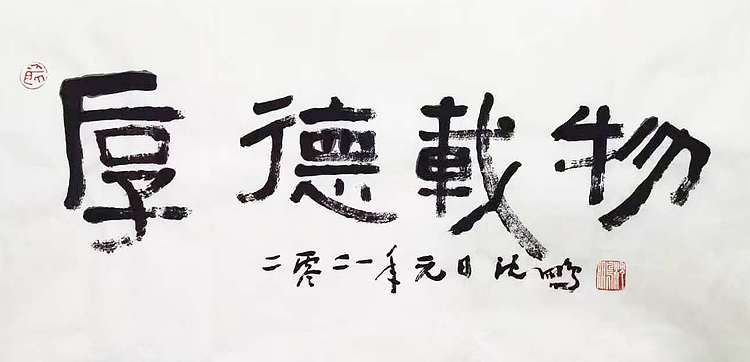 厚德載物
二零二一年元日沈鵬